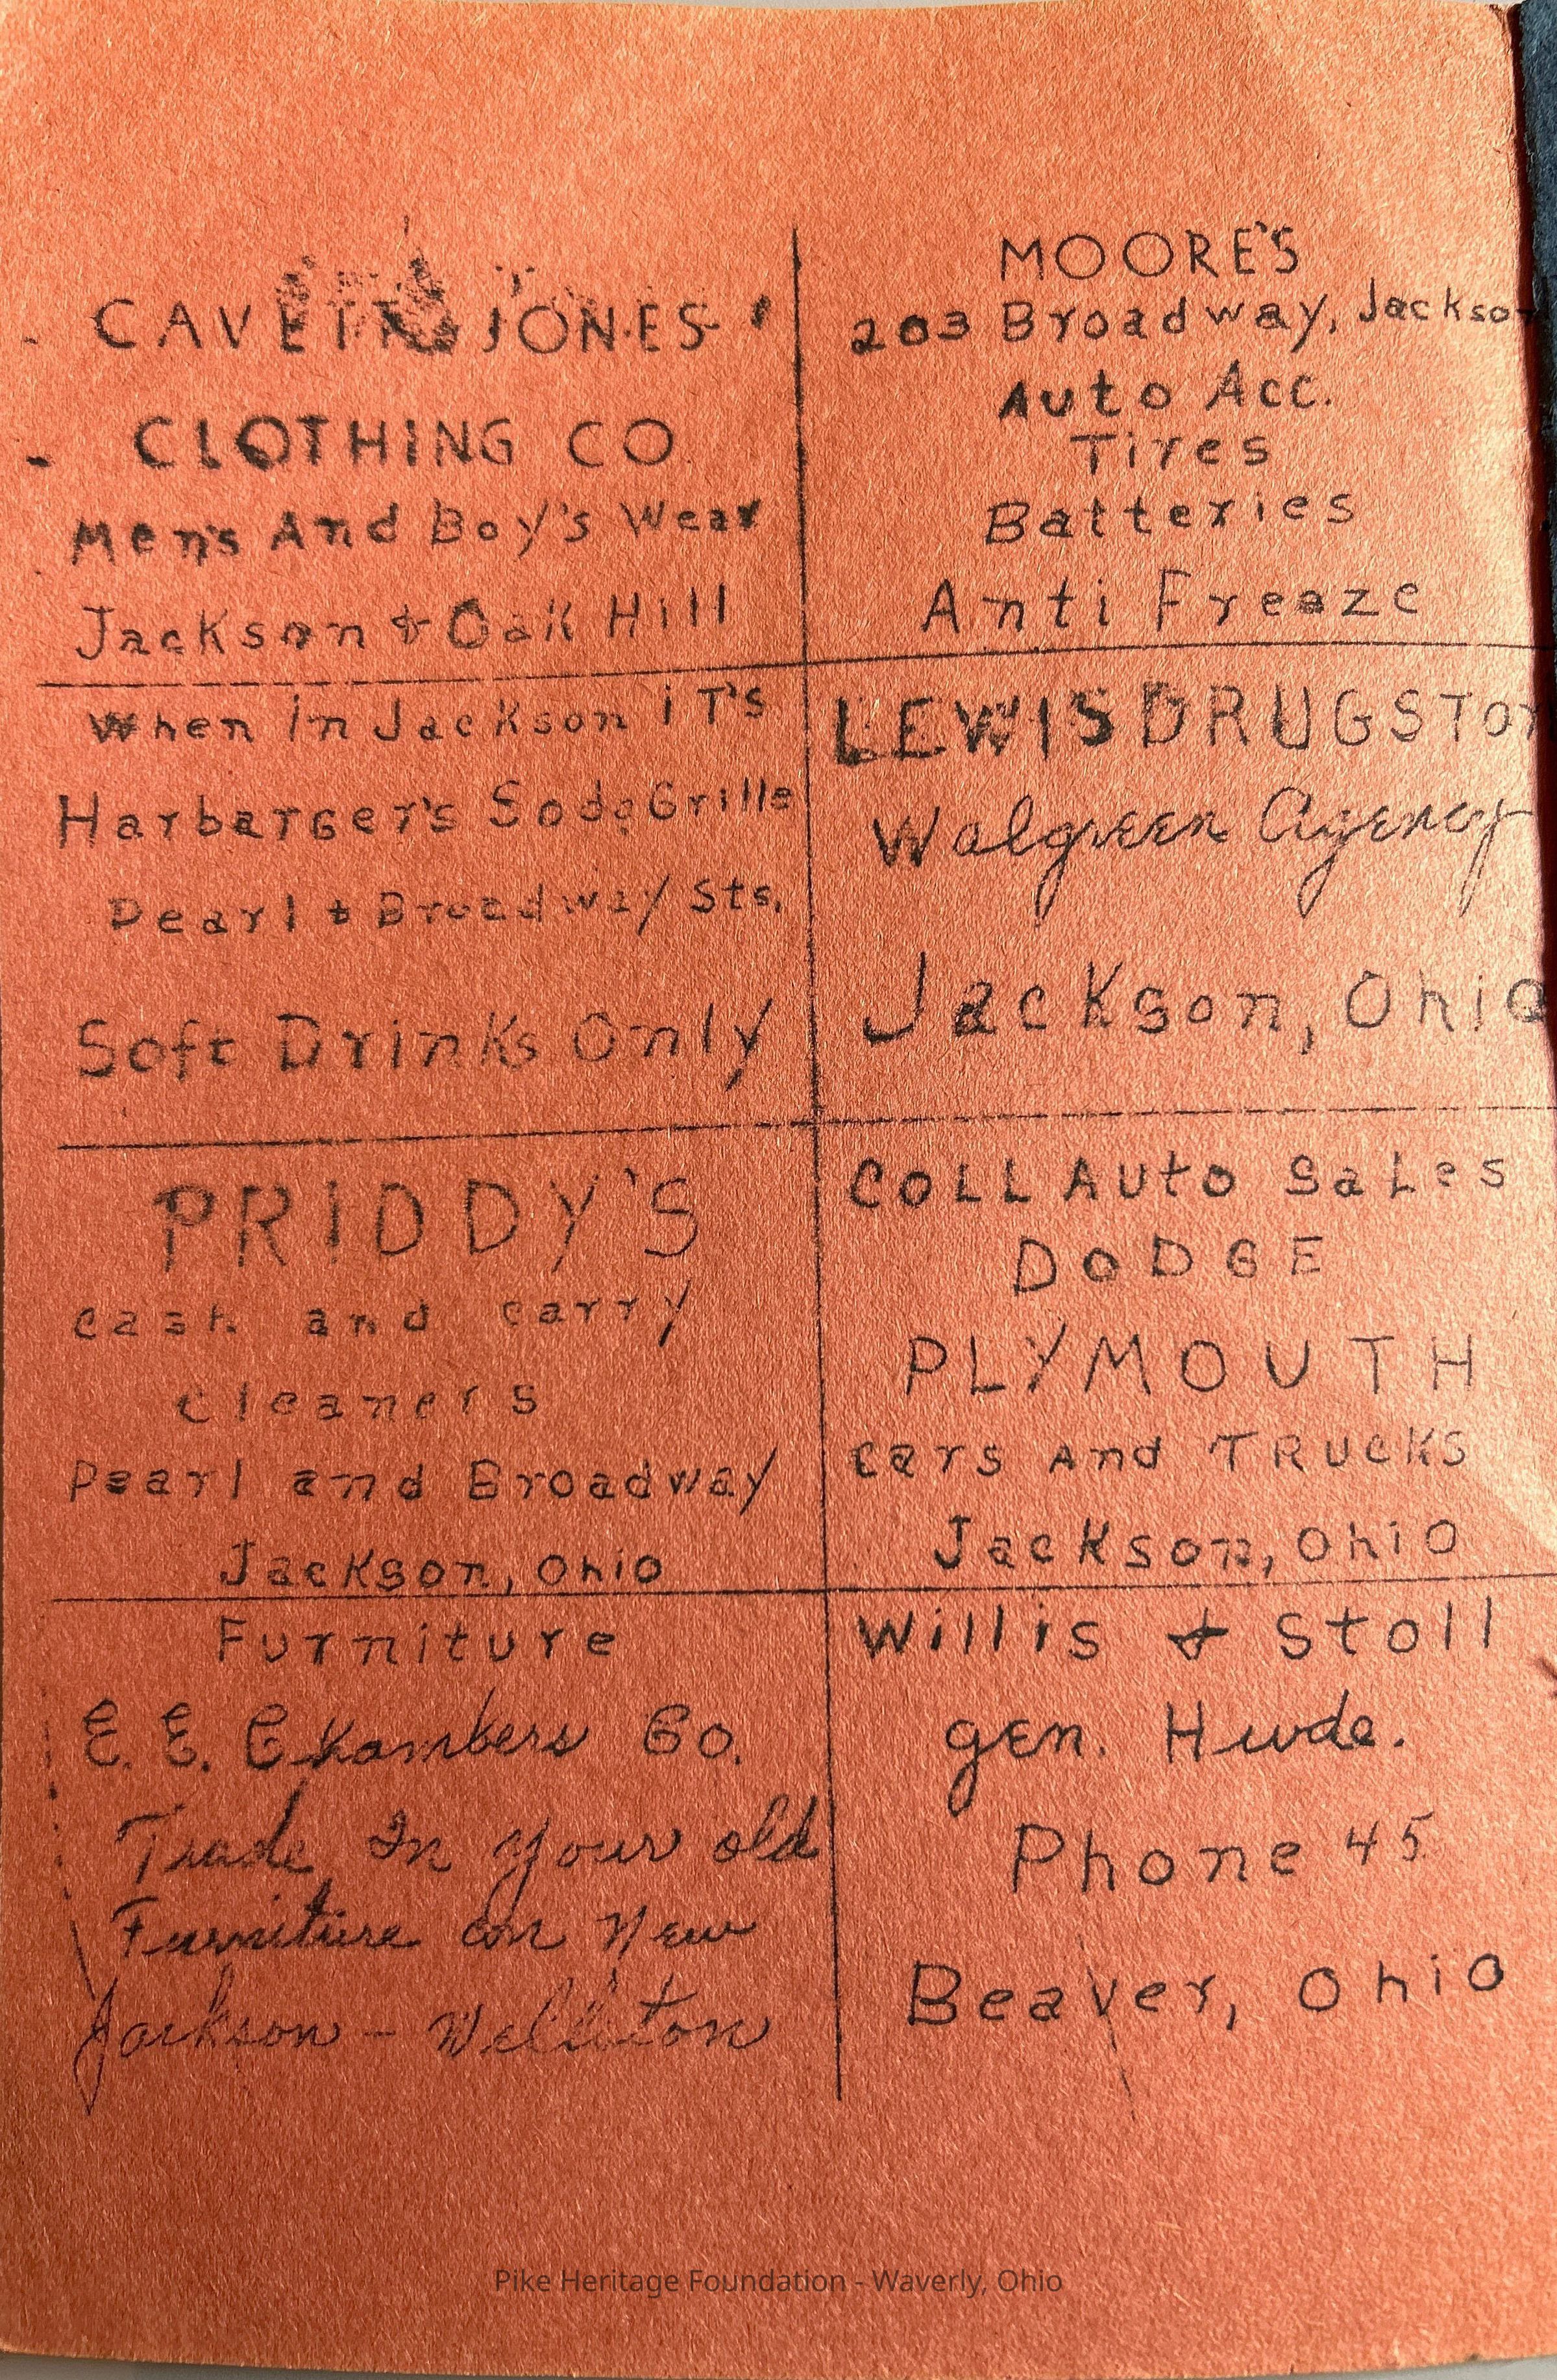 CAVETT & JONES
CLOTHING CO.
Men's And Boy's Wear
Jackson & Oak Hill
MOORE'S
203 Broadway, Jackson
Auto Acc.
Tires
Batteries
Anti Freeze
When in Jackson iT's
Harbarger's Soda Grille
Pearl & Broadway Sts.
Soft Drinks Only
LEWIS DRUG STor
Walgreen Agency
Jackson, Ohio
PRIDDY'S
cash and carry
cleaners
Pearl and Broadway
Jackson, Ohio
COLL Auto SaLes
DODGE
PLYMOUTH
Cars And TRUCKS
Jackson, Ohio
Furniture
E. E. Chambers Co.
Trade In your old
Furniture on New
Jackson - Wellston
Willis & Stoll
gen. Hwde.
Phone 45
Beaver, Ohio
Pike Heritage Foundation - Waverly, Ohio